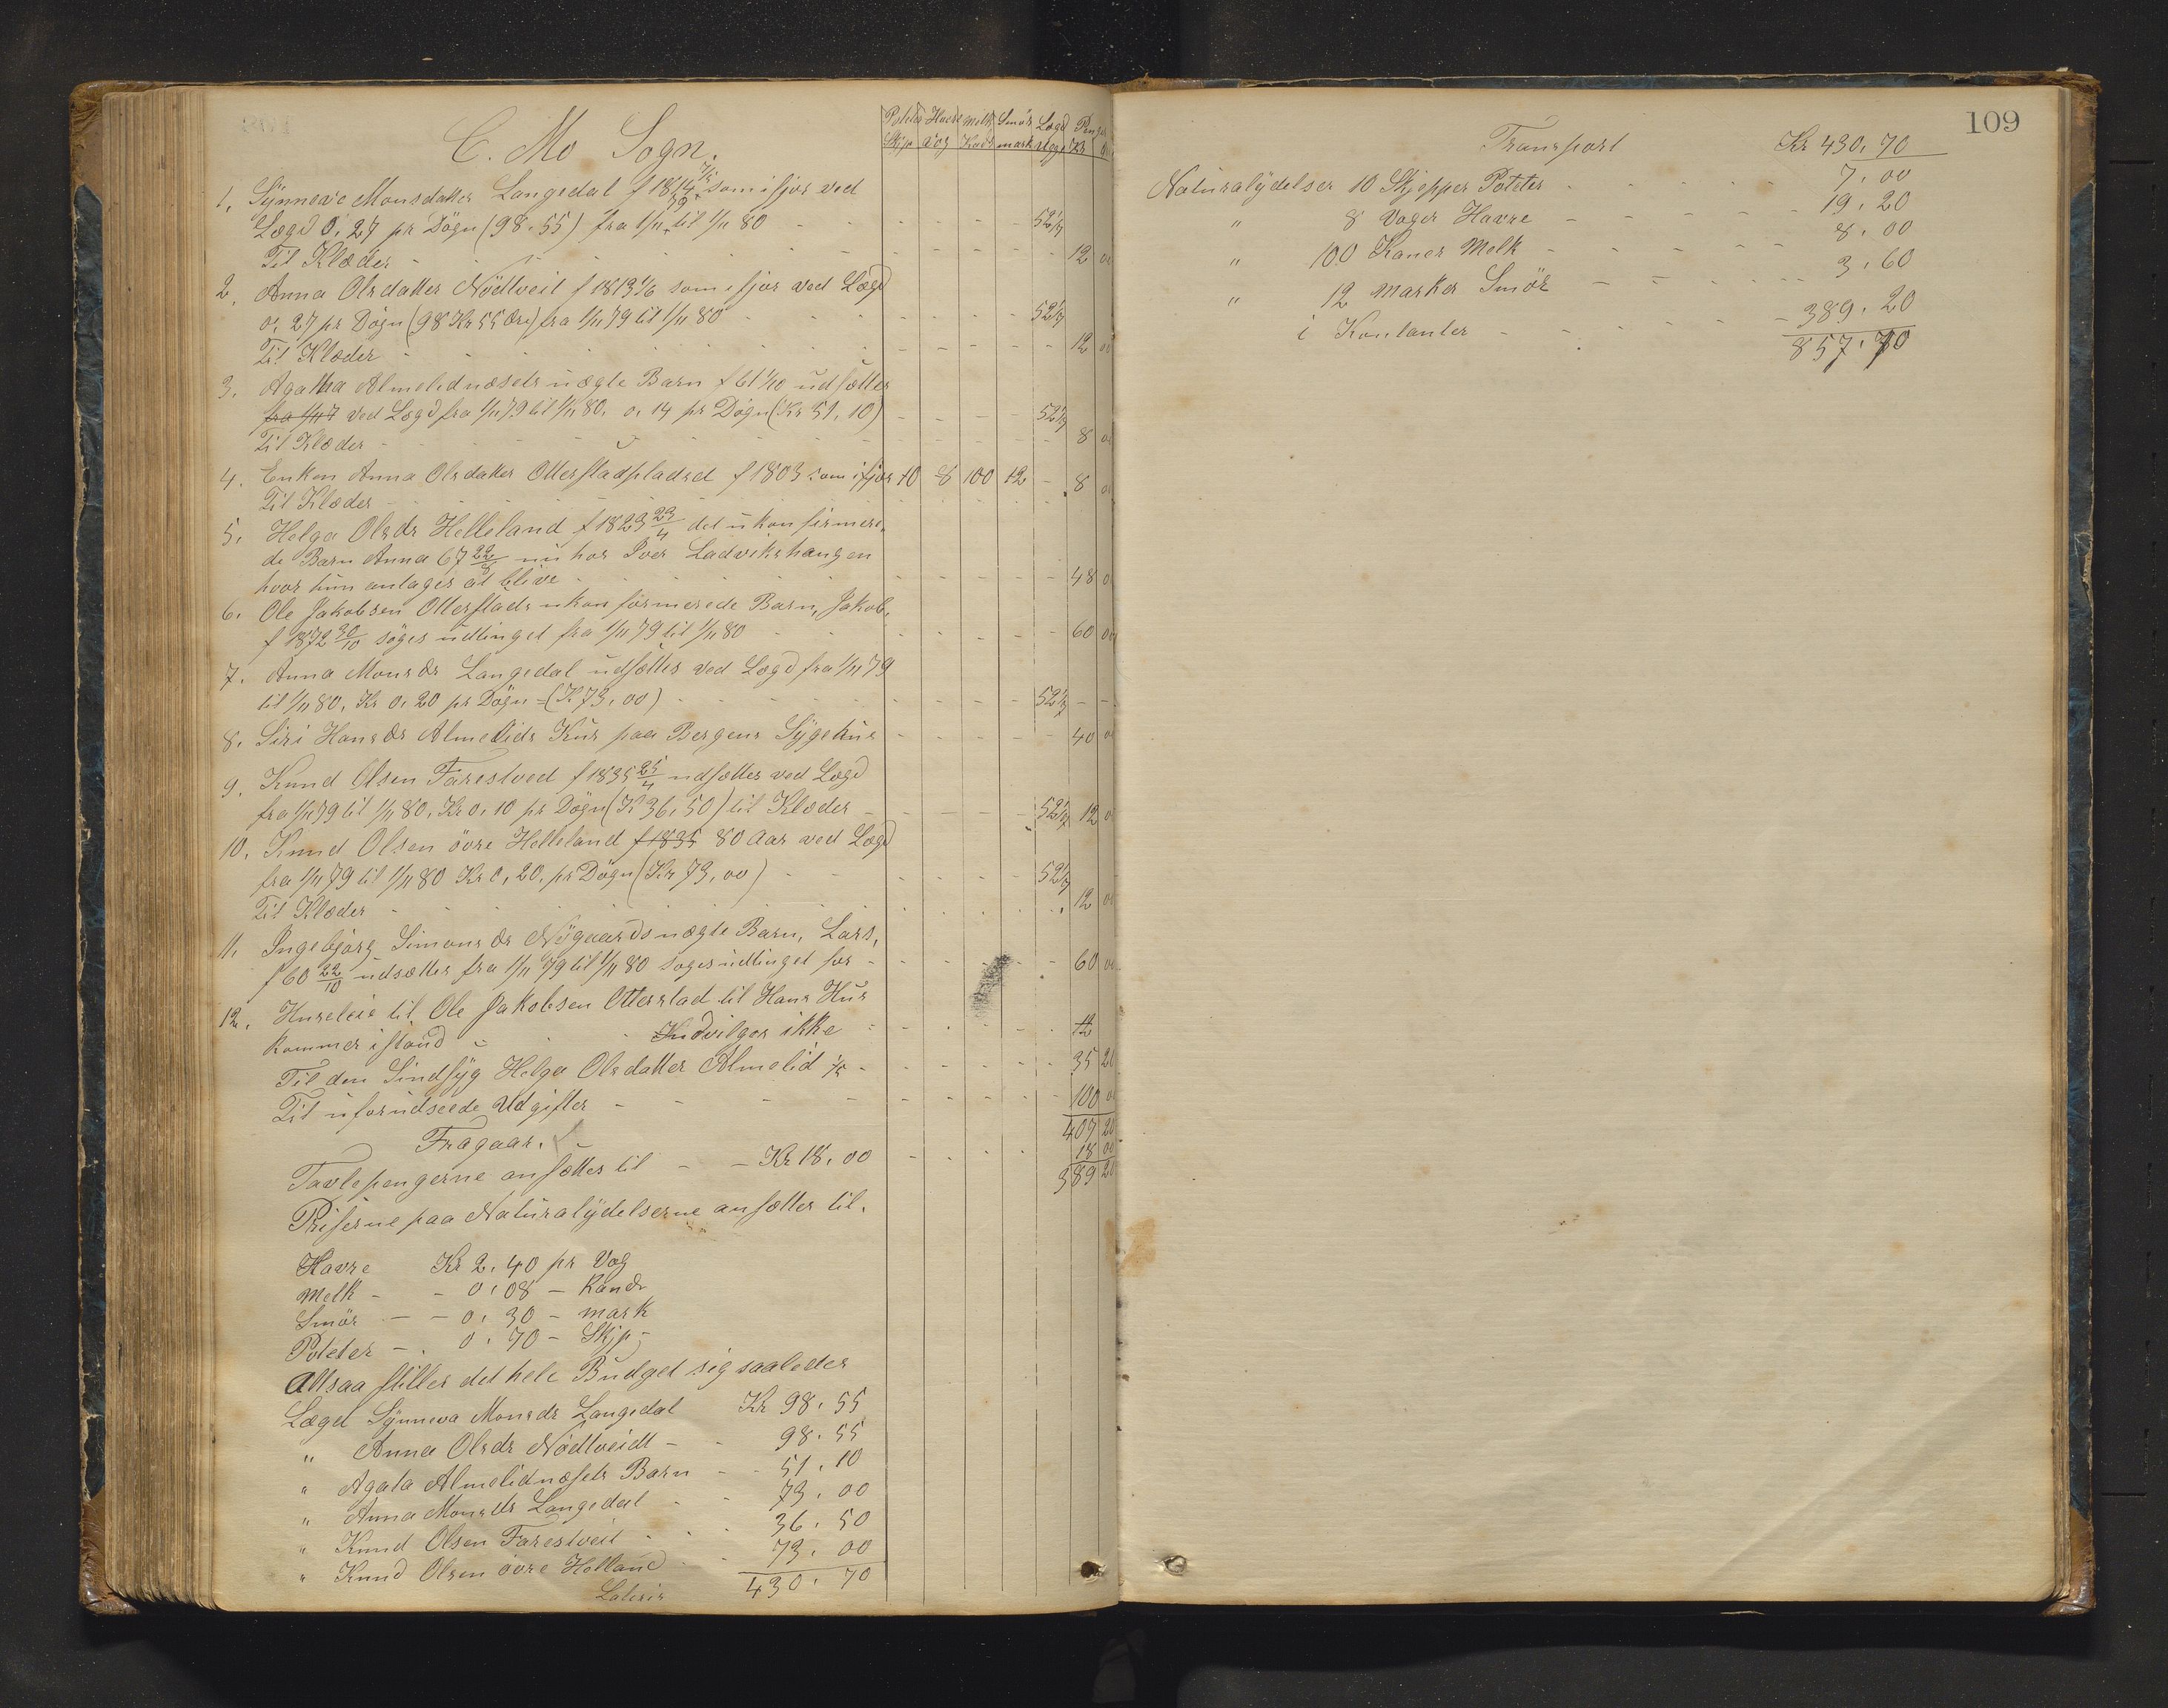 C. Mo Sogn.
Poteter Havre Melk Smör Lægd Penge
Skjp Vog Kand mark Uger Kr
1, Synneve Monsdatter Langedal f 1814 som ifjor ved
Lægd 0,27 pr Dögn (98.55) fra 1/11 79 til 1/11 80 52 1/7
Til Klæder 12 00
2, Anna Olsdatter Nödtveit f 1813 1/6 som ifjor ved Lægd
0,27 pr Dögn (98 Kr 55 Öre) fra 1/11 79 til 1/11 80 52 1/7
Til Klæder 12 00
3, Agatha Almelidnæsets uægte Barn f 61 1/10 udsættes
fra 1/11 7 ved Lægd fra 1/11 79 til 1/11 80. 0,14 pr Dögn (Kr 51,10) 52 1/7
Til Klæder 8 00
4. Enken Anna Olsdatter Otterstadpladset f 1803 som ifjor 10 8 100 12 - 8 00
Til Klæder
5, Helga Olsdr Helleland f 1823 23/4 det ukonfirmere-
de Barn Anna 67 22/8 nu hos Iver Ladvikshaugen
hvor hun antages at blive 48 0
6. Ole Jakobsen Otterstads ukonfirmerede Barn, Jakob,
f 1872 20/10 söges udtinget fra 1/11 79 til 1/11 80 60 00
7. Anna Monsdr Langedal udsættes ved Lægd fra 1/11 79
til 1/11 80, Kr 0,20 pr Dögn - (K 73,00) 52 1/7 - -
8. Siri Hansdr Almelids Kur paa Bergens Sygehus 40 00
9. Knud Olsen Farestved f 1835 25/4 udsættes ved Lægd
fra 1/11 79 til 1/11 80, Kr 0,10 pr Dögn (K 36,50) til Klæder 52 1/7 12 0
10, Knud Olsen övre Helleland f 1835 80 Aar ved Lægd
fra 1/11 79 til 1/11 80 Kr 0,20, pr Dögn (Kr 73,00) 52 1/7
Til Klæder 12 00
11, Ingebjörg Simonsdr Nygaards uægte Barn, Lars,
f 60 22/10 udsættes fra 1/11 79 til 1/11 80 söges udtinget for 60 00
12. Husleie til Ole Jakobsen Otterstad til Hans Hus
kommer istand - Indvilges ikke 12
Til den Sindsyg Helga Olsdatter Almelid 1/5 35 20
Til uforudseede Udgifter 100 0
407 20
Fragaar.
Tavlepengerne ansættes til - - Kr 18,00 18 00
389 20
Priserne paa Naturalydelserne ansættes til.
Havre Kr 2,40 pr Vog
Melk - - 0,08 - Kande
Smör - - 0,30 - mark
Poteter - . 0,70 - Skjp -
Altsaa stiller det hele Budget sig saaledes
Lægd Synneva Monsdr Langedal Kr 98,55
" Anna Olsdr Nödtveidt - - 98.55
" Agata Almelidnæsets Barn - - 51.10
" Anna Monsdr Langedal - - 73,00
" Knud Olsen Farestveit - - 36,50
" Knud Olsen övre Helland - - 73,00
Lateris 430,70
109
Transport Kr 430,70
Naturalydelser 10 Skjepper Poteter 7,00
" 8 Voger Havre 19,20
" 100 Kaner Melk 8,00
" 12 Marker Smör 3,60
i Kontanter - 389,20
857,70